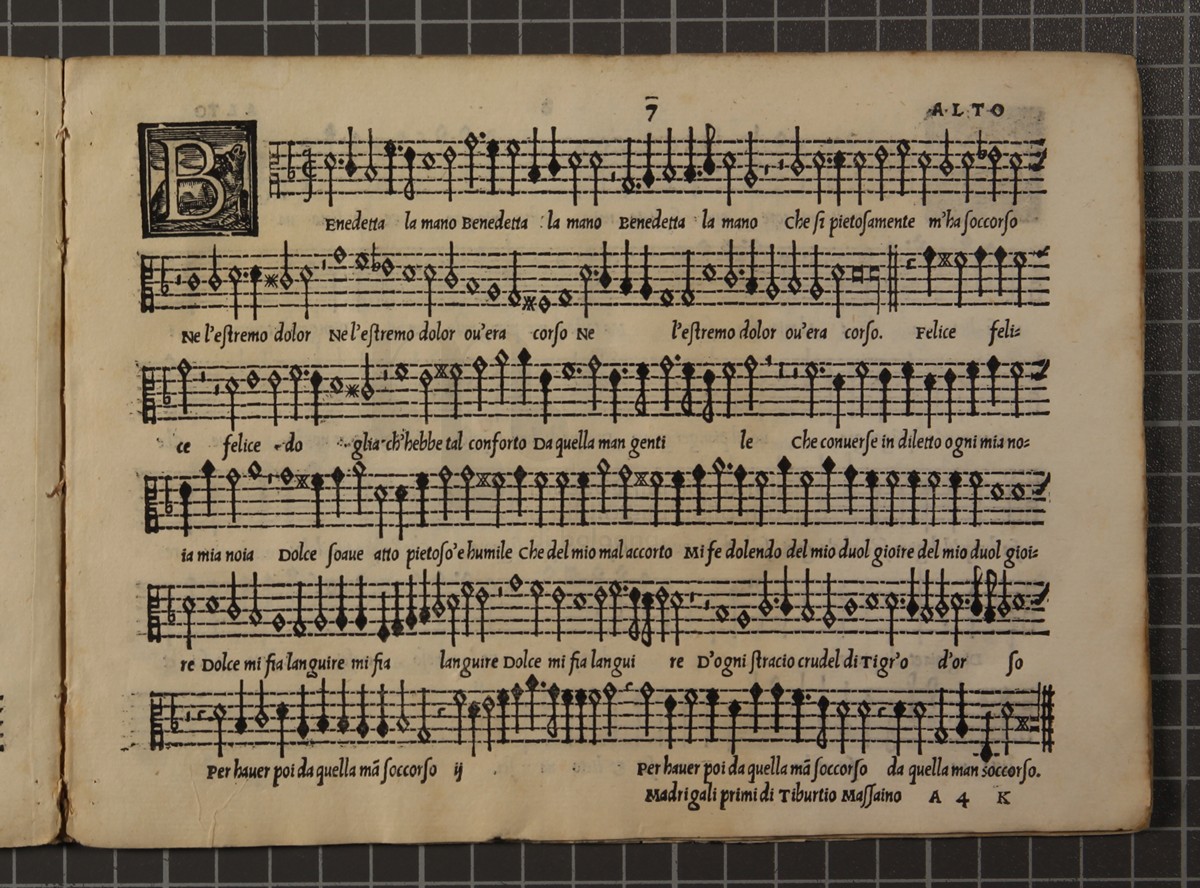 7 ALTO
BEnedetta la mano Benedetta la mano Benedetta la mano Che si pietosamente m'ha soccorso
Ne l'estremo dolor Ne l'estremo dolor ou'era corso Ne l'estremo dolor ou'era corso. Felice feli=
ce felice do glia ch'hebbe tal conforto Da quella man genti le Che conuerse in diletto ogni mia no=
ia mia noia Dolce soaue atto pietoso'e humile Che del mio mal accorto Mi fe dolendo del mio duol gioire del mio duol gioi=
re Dolce mi fia languire mi fia languire Dolce mi fia langui re D'ogni stracio crudel di Tigr'o d'or so
Per hauer poi da quella mā soccorso ij Per hauer poi da quella mā soccorso da quella man soccorso.
Madrigali primi di Tiburtio Massaino A 4 K